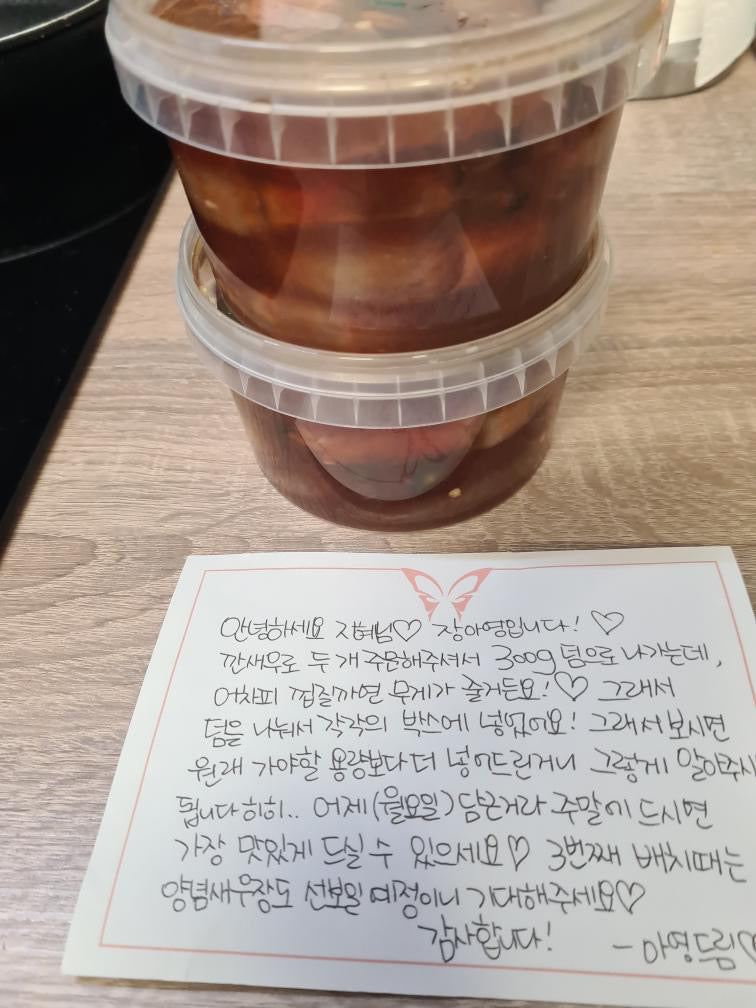 안녕하세요 지혜님♡ 장아영입니다! ♡
깐새우로 두 개 주문해주셔서 300g 덤으로 나가는데,
어차피 껍질까면 무게가 줄거든요!♡ 그래서
덤을 나눠서 각각의 박스에 넣었어요! 그래서 보시면
원래 가야할 용량보다 더 넣어드린거니 그렇게 알아주시
됩니다히히.. 어제(월요일) 담은거라 주말에 드시면
가장 맛있게 드실 수 있으세요♡ 3번째 배치때는
양념새우장도 선보일 예정이니 기대해주세요♡
감사합니다! - 아영드림♡